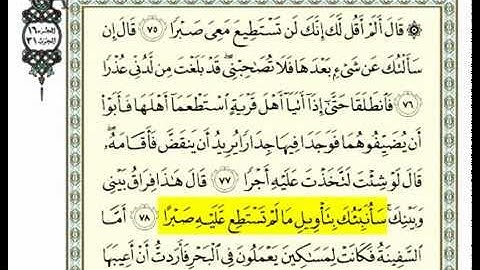 ۞ قَالَ أَلَمْ أَقُل لَّكَ إِنَّكَ لَن تَسْتَطِيعَ مَعِىَ صَبْرًا ٧٥ قَالَ إِن
سَأَلْتُكَ عَن شَىْءٍۭ بَعْدَهَا فَلَا تُصَٰحِبْنِى ۖ قَدْ بَلَغْتَ مِن لَّدُنِّى عُذْرًا
٧٦ فَٱنطَلَقَا حَتَّىٰٓ إِذَآ أَتَيَآ أَهْلَ قَرْيَةٍ ٱسْتَطْعَمَآ أَهْلَهَا فَأَبَوْا۟
أَن يُضَيِّفُوهُمَا فَوَجَدَا فِيهَا جِدَارًا يُرِيدُ أَن يَنقَضَّ فَأَقَامَهُۥ ۖ
قَالَ لَوْ شِئْتَ لَتَّخَذْتَ عَلَيْهِ أَجْرًا ٧٧ قَالَ هَٰذَا فِرَاقُ بَيْنِى
وَبَيْنِكَ ۚ سَأُنَبِّئُكَ بِتَأْوِيلِ مَا لَمْ تَسْتَطِع عَّلَيْهِ صَبْرًا ٧٨ أَمَّا
ٱلسَّفِينَةُ فَكَانَتْ لِمَسَٰكِينَ يَعْمَلُونَ فِى ٱلْبَحْرِ فَأَرَدتُّ أَنْ أَعِيبَهَا